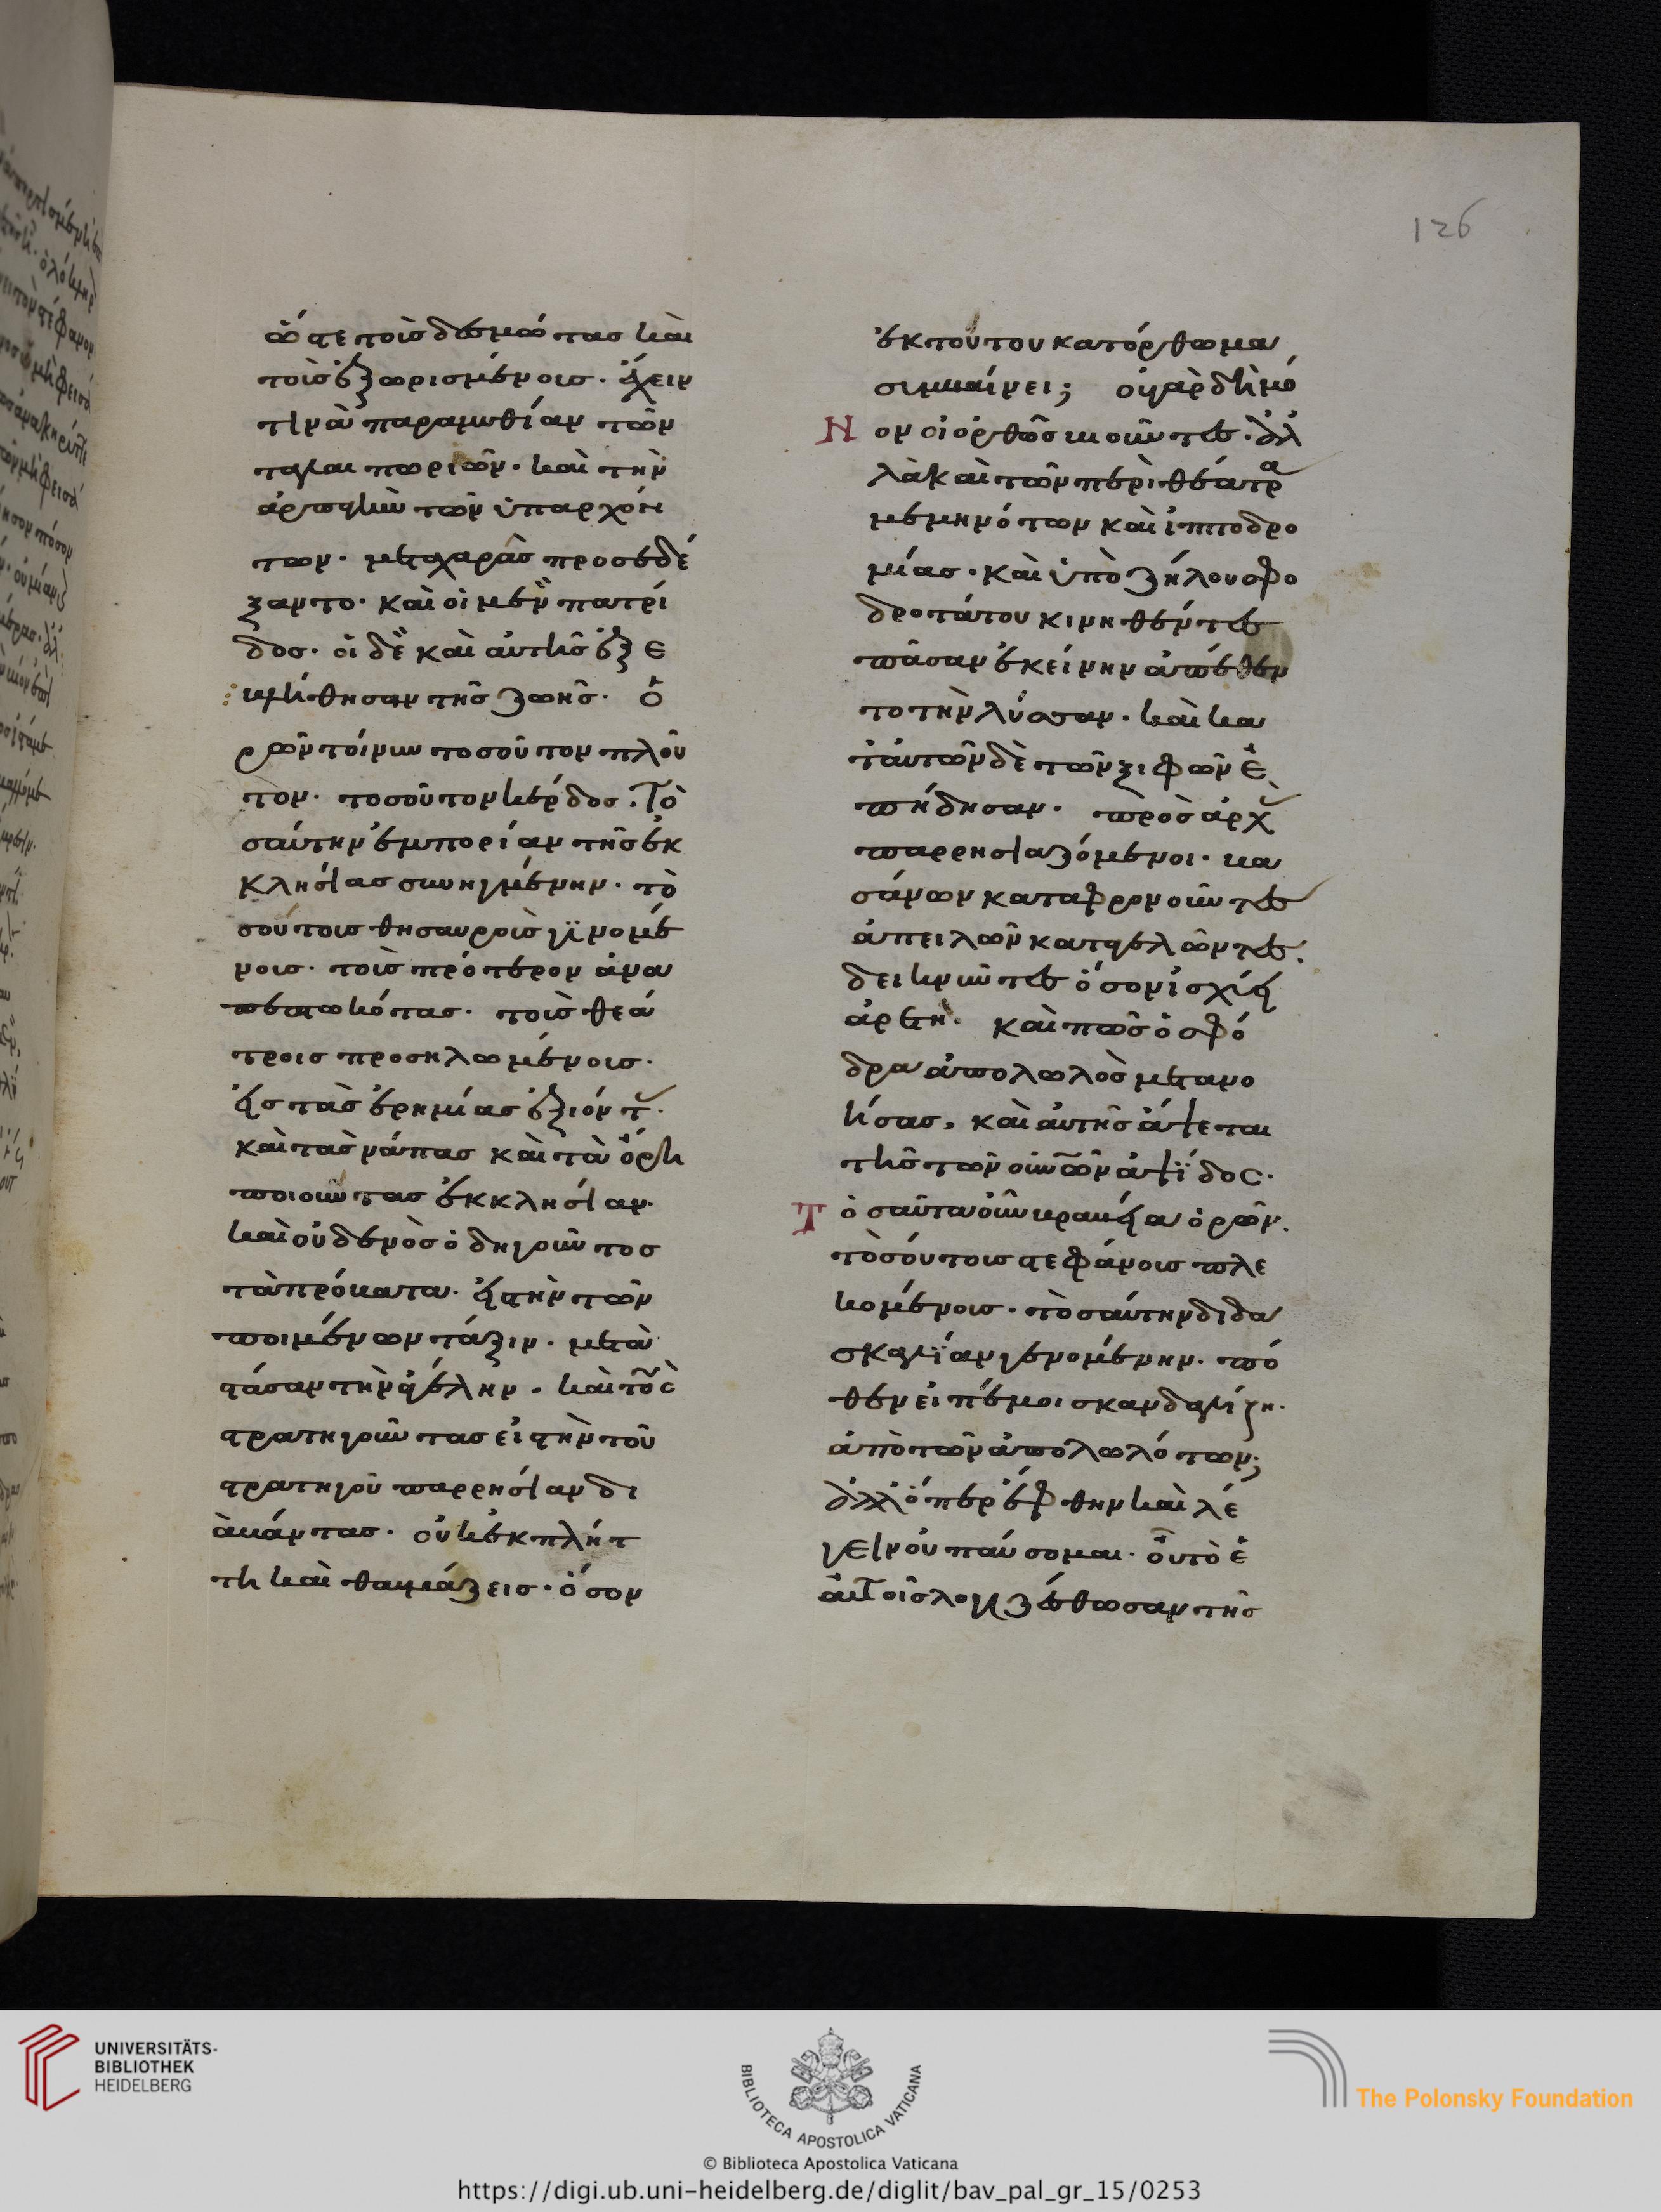 ὥστε τοῖς δεσμώτας καὶ
τοῖς ἐξωρισμένοις. ἔχειν
τινὰ παραμυθίαν τῶν
ταλαιπωριῶν. καὶ τὴν
ἁρπαγὴν τῶν ὑπαρχόν
των. μετὰ χαρᾶς προσεδέ
ξαντο. καὶ οἱ μὲν πατρί
δος. οἱ δὲ καὶ αὐτῆς ἐξε
βλήθησαν τῆς ζωῆς. Ὁ
ρῶν τοίνυν τοσοῦτον πλοῦ
τον. τοσοῦτον κέρδος. Το
σαύτην ἐμπορίαν τῆς ἐκ
κλησίας συνηγμένην. το
σούτοις θησαυροῖς γϊνομέ
νοις. τοὶς πρότερον ἀνα
πεπτωκότας. τοὶς θεά
τροις προσηλωμένοις.
εἰς τὰς ἐρημίας ἐξιόντ.
καὶ τὰς νάπας καὶ τὰ ὄρη
ποιοῦντας ἐκκλησίαν.
καὶ οὐδενὸς ὁδηγοῦντος
τὰ πρόβατα. εἰς τὴν τῶν
ποιμένων τάξιν. μετὰ
στάσαν τὴν ἀγέλην. καὶ τοὺς
στρατηγοῦντας εἰς τὴν τοῦ
στρατηγοῦ παρρησίαν δι
ἀβάντας. οὐκ ἐκπλήτ
τη καὶ θαυμάζεις. ὅσον
ἐκ τούτου κατόρθωμα
συμβαίνει; οὐ γὰρ δὴ μό
νον οἱ ὀρθῶς βιοῦντες. ἀλ
λὰ καὶ τῶν περὶ θέατρα
μεμηνότων καὶ ἱπποδρο
μίας. καὶ ὑπὸ ζήλου σφο
δροτάτου κινηθέντες
πᾶσαν ἐκείνην ἀπέθεν
το τὴν λύσσαν. καὶ κα
τ' αὐτῶν δὲ τῶν ξιφῶν ἐ
πήδησαν. πρὸς ἀρχ
παρρησιαζόμενοι. βα
σάνων καταφρονοῦντες
ἀπειλῶν καταγελῶντες.
δεικνῦντες ὅσον ἰσχύει
ἀρετή. καὶ πῶς ὁ σφό
δρα ἀπολωλὸς μετανο
ήσας, καὶ αὐτῆς ἅψεται
τῆς τῶν οὐνῶν ἁψϊδος.
Τοσαῦτα οὖν βραβεῖα ὁρῶν.
τοσούτοις στεφάνοις πλε
κομένοις. τοσαύτην διδα
σκαλΐαν γενομένην. πό
θεν εἰπέ μοι σκανδαλίζη.
ἀπὸ τῶν ἀπολωλότων;
ἀλλ' ὅπερ ἔφθην καὶ λέ
γειν οὐ παύσομαι. οὗτο ἑ
αυτοῖς λογιζέσθωσαν τῆς
126
UNIVERSITÄTS-
BIBLIOTHEK
HEIDELBERG
BIBLIOTECA APOSTOLICA VATICANA
The Polonsky Foundation
© Biblioteca Apostolica Vaticana
https://digi.ub.uni-heidelberg.de/diglit/bav_pal_gr_15/0253